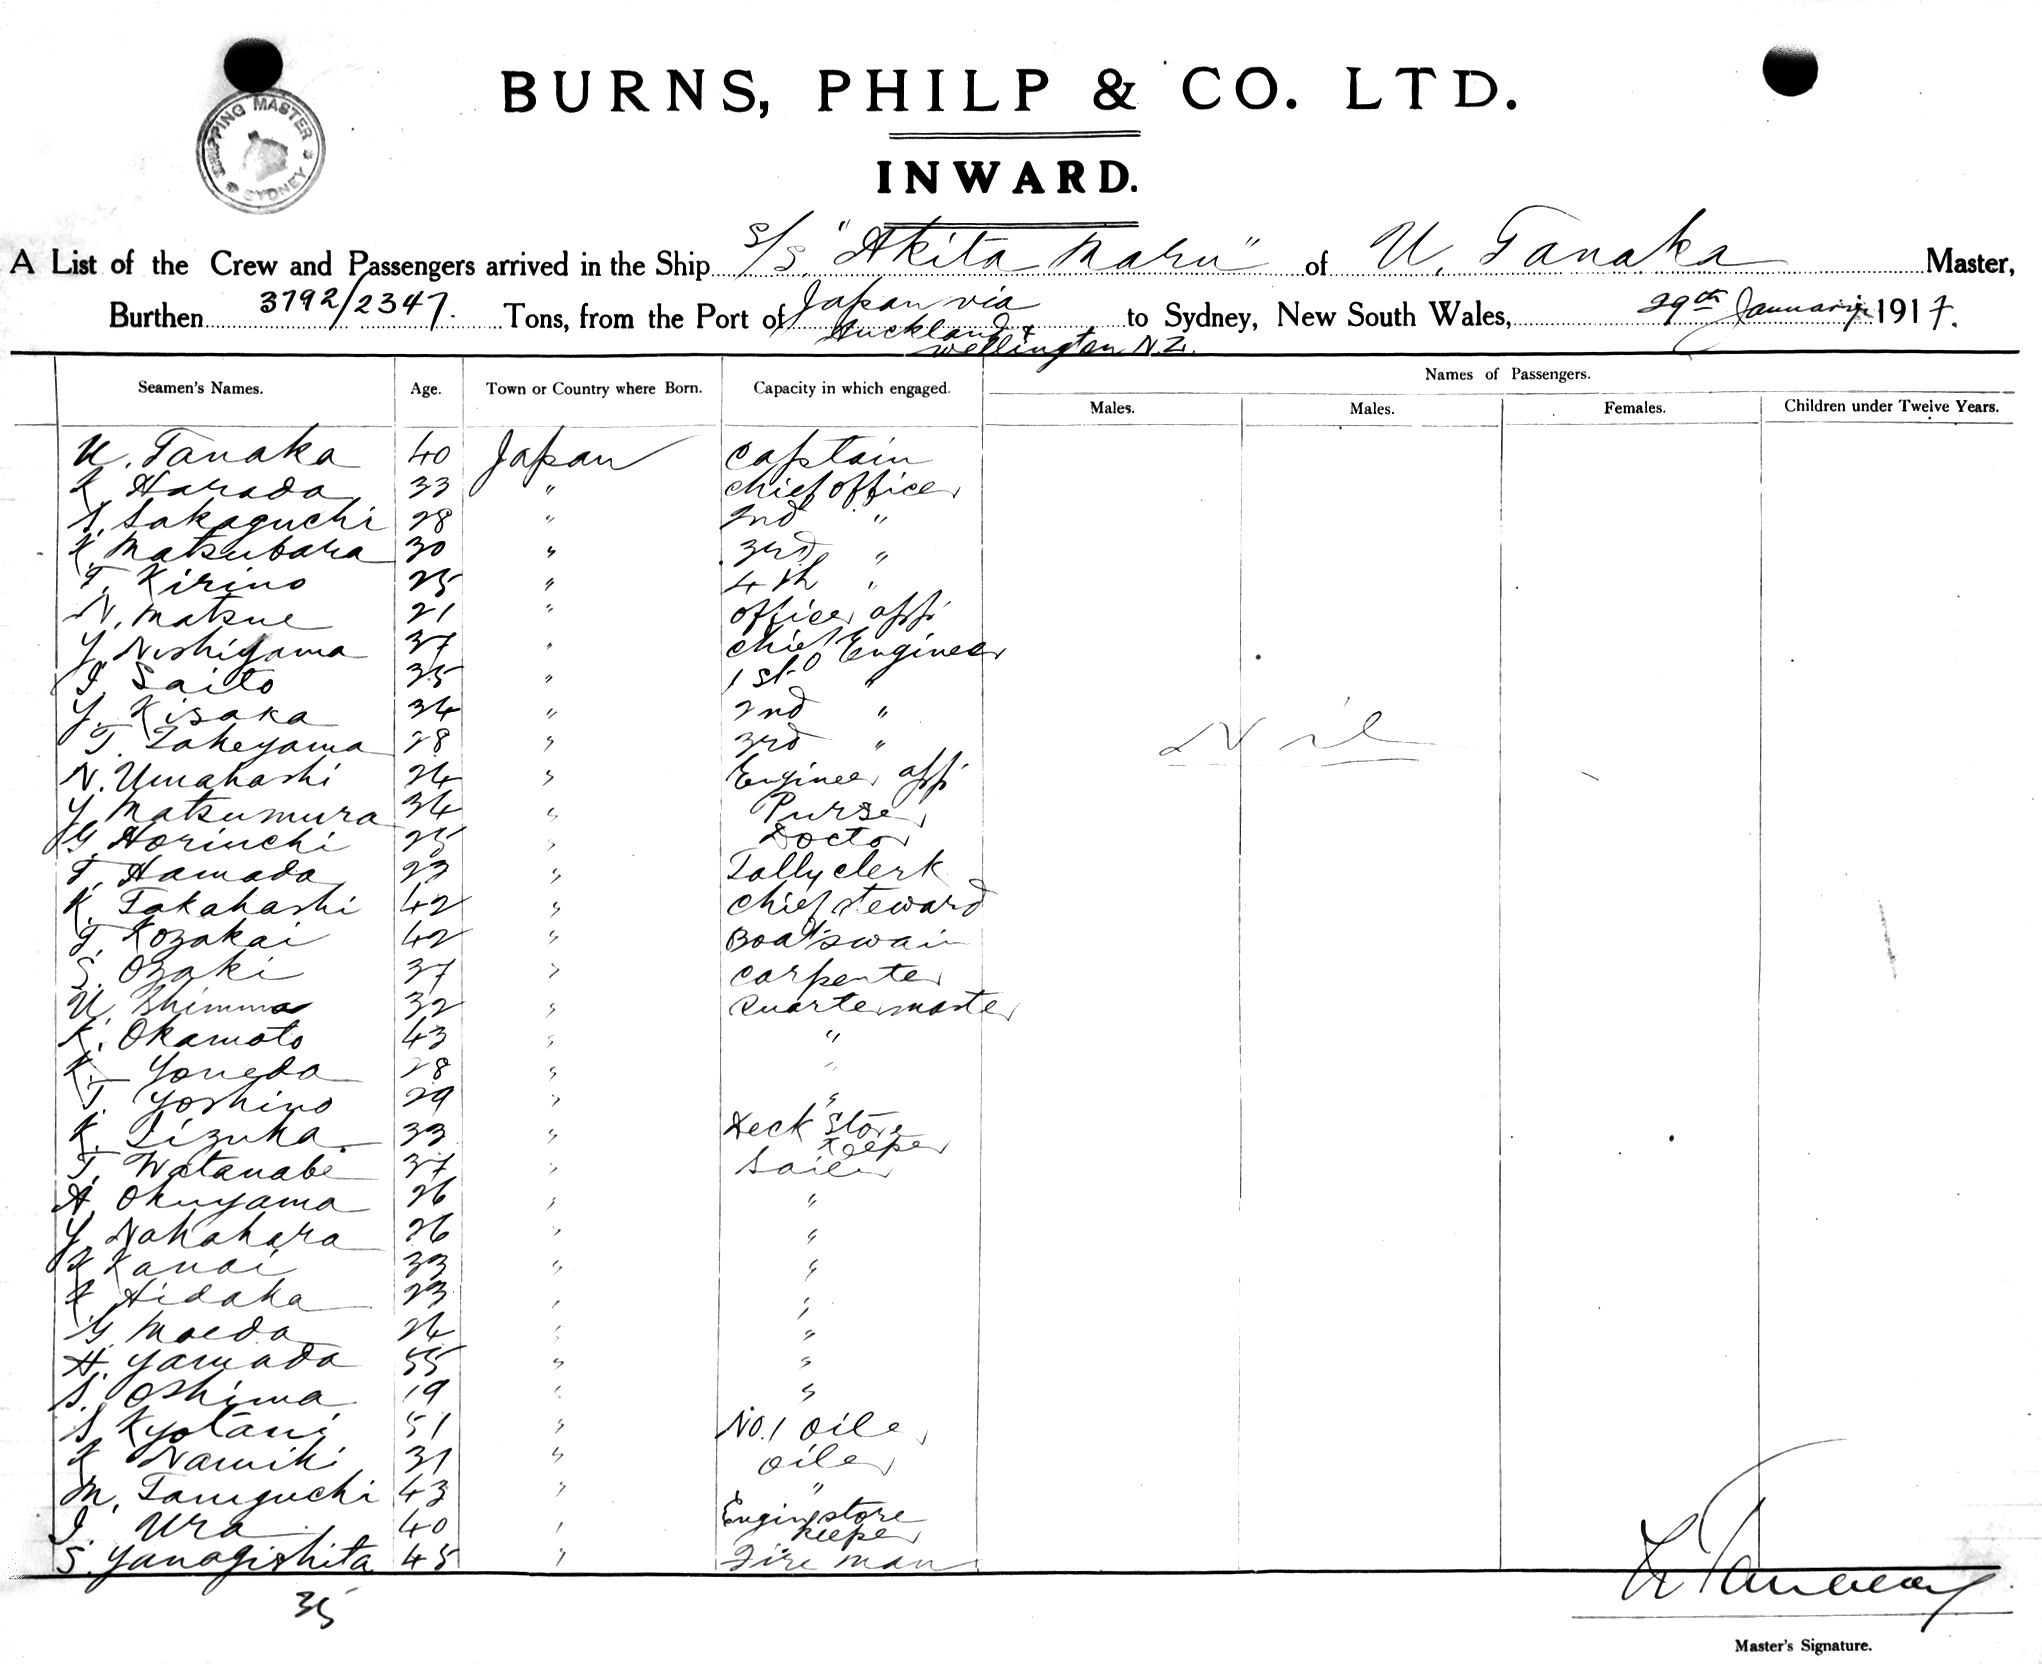 BURNS, PHILP & CO. LTD.
SHIPPING MASTER SYDNEY
INWARD.
A List of the Crew and Passengers arrived in the Ship s/s "Akita Maru" of U. Tanaka Master,
Burthen 3792/2347. Tons, from the Port of Japan via Auckland & Wellington N.Z. to Sydney, New South Wales, 29th January 1917.
Names of Passengers.
Seamen's Names. Age. Town or Country where Born. Capacity in which engaged. Males. Males. Females. Children under Twelve Years.
U. Tanaka 40 Japan Captain
K. Harada 33 " chief officer
S. Sakaguchi 28 " 2nd "
K. Matsubara 30 " 3rd "
T. Kirino 25 " 4th "
N. Matsue 21 " officer app.
Y. Nishiyama 37 " chief Engineer
I. Saito 35 " 1st "
Y. Kisaka 34 " 2nd "
T. Takeyama 28 " 3rd "
Nil
N. Umahashi 24 " Engineer app.
Y. Matsumura 34 " Purser
G. Horiuchi 25 " Doctor
T. Hamada 23 " Tally clerk
K. Takahashi 42 " chief steward
T. Kozakai 42 " Boatswain
S. Ozaki 37 " carpenter
U. Shimma 32 " Quartermaster
K. Okamoto 43 " "
K. Yoneda 28 " "
T. Yoshino 29 " "
K. Iizuka 33 " Deck Store Keeper
T. Watanabe 37 " Sailer
H. Okuyama 26 " "
Y. Nakahara 26 " "
K. Kanai 33 " "
K. Hidaka 23 " "
G. Maeda 24 " "
H. Yamada 55 " "
S. Oshima 19 " "
S. Kyotani 51 " No. 1 oiler
K. Namiki 31 " oiler
M. Taniguchi 43 " "
I. Ura 40 " Engin store keeper
S. Yanagishita 45 " Fire man
35
Master's Signature.